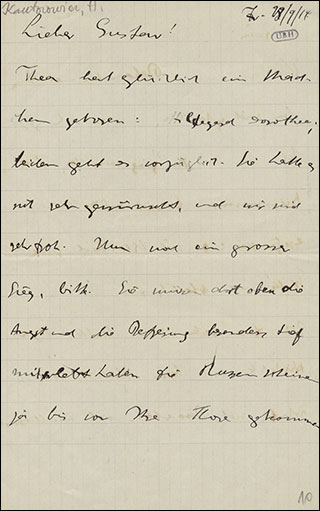 Kantorowicz, H.
Fr. 28/9/14
UBH
Lieber Gustav!
Thea hat glücklich ein Mäd-
chen geboren: Hildegard Dorothee,
beiden geht es vorzüglich. Sie hatte es
mit sehr gewünscht, und wir sind
sehr froh. Nun noch ein grosser
Sieg, bitte. Sie müssen dort oben die
Angst und die Befreiung besonders tief
miterlebt haben die Russen scheinen
ja bis vor Ihre Thore gekommen
10